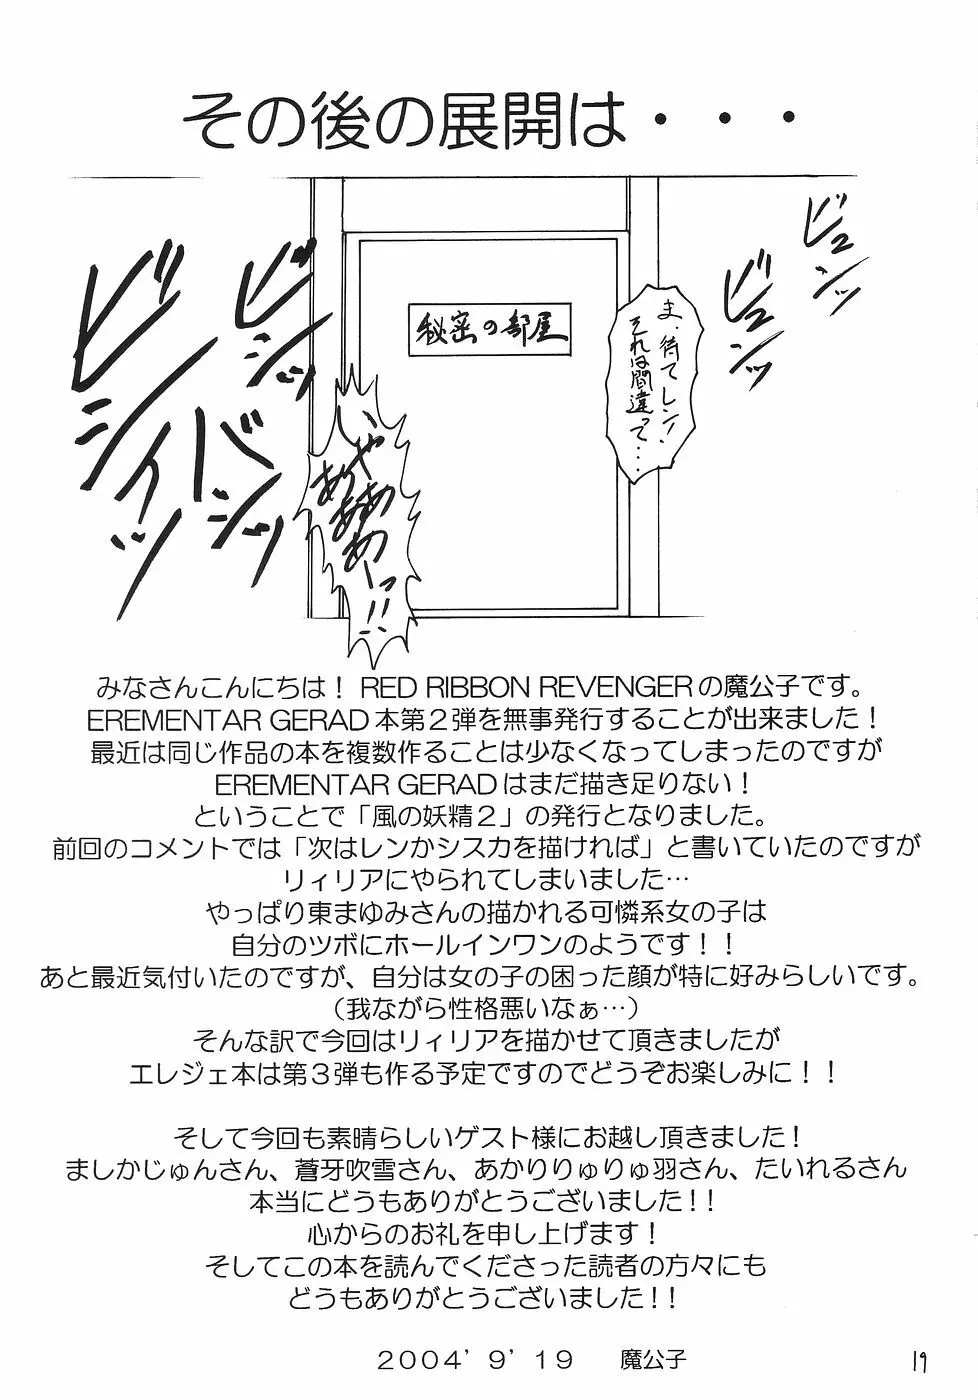 その後の展開は・・・
ビュンッ
ビュンッ
ま、待てレン！
それは間違って‥‥
秘密の部屋
いやあ
あああ
あーっ!!
ビシッ
バシッ
ビシィッ
みなさんこんにちは！ RED RIBBON REVENGERの魔公子です。
EREMENTAR GERAD本第２弾を無事発行することが出来ました！
最近は同じ作品の本を複数作ることは少なくなってしまったのですが
EREMENTAR GERADはまだ描き足りない！
ということで「風の妖精２」の発行となりました。
前回のコメントでは「次はレンかシスカを描ければ」と書いていたのですが
リィリアにやられてしまいました…
やっぱり東まゆみさんの描かれる可憐系女の子は
自分のツボにホールインワンのようです！！
あと最近気付いたのですが、自分は女の子の困った顔が特に好みらしいです。
（我ながら性格悪いなぁ…）
そんな訳で今回はリィリアを描かせて頂きましたが
エレジェ本は第３弾も作る予定ですのでどうぞお楽しみに！！
そして今回も素晴らしいゲスト様にお越し頂きました！
ましかじゅんさん、蒼牙吹雪さん、あかりりゅりゅ羽さん、たいれるさん
本当にどうもありがとうございました！！
心からのお礼を申し上げます！
そしてこの本を読んでくださった読者の方々にも
どうもありがとうございました！！
２００４’９’１９　魔公子
19